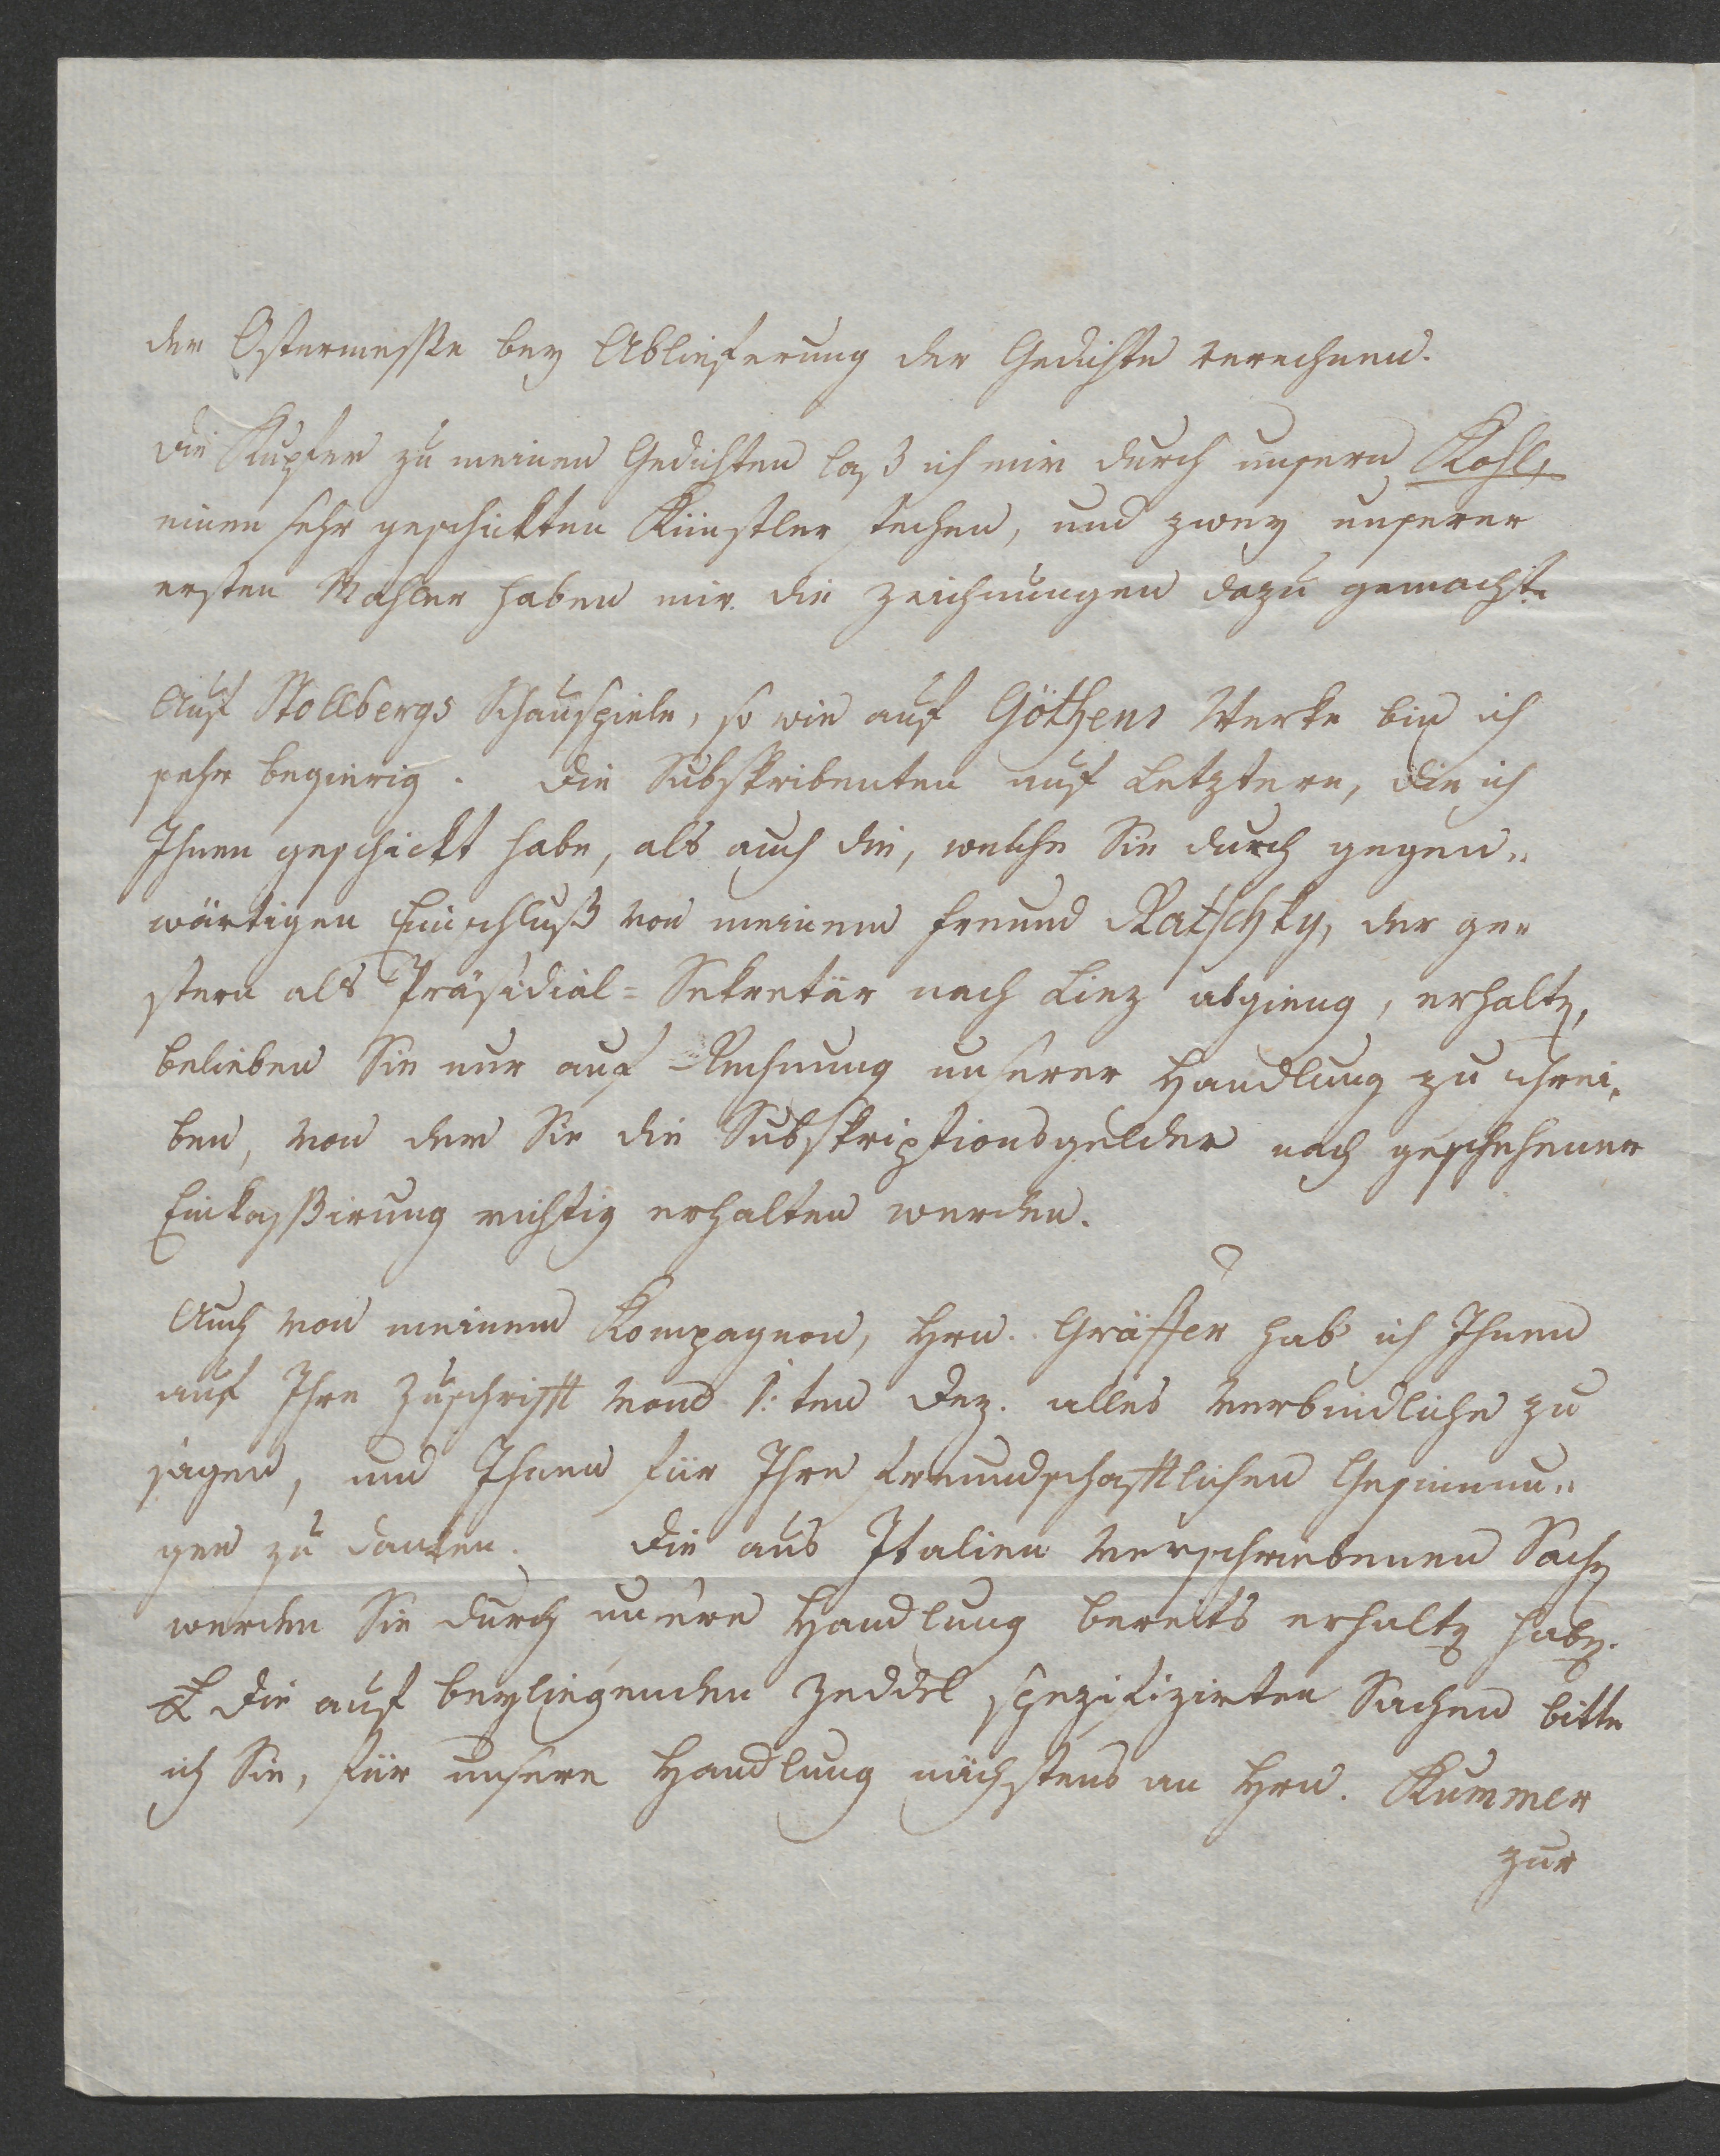 der Ostermesse bey Ablieferung der Gedichte verrechnen.
Die Kupfer zu meinen Gedichten laß ich mir durch unsern Kohl,
einen sehr geschickten Künstler stechen, und zwey unserer
ersten Mahler haben mir die Zeichnungen dazu gemacht.
Auf Stollbergs Schauspiele, so wie auf Göthens Werke bin ich
sehr begierig. Die Subskribenten auf Letztere, die ich
Ihnen geschickt habe, als auch die, welche Sie durch gegen„
wärtigen Einschluß von meinem Freund Ratschky, der ge„
stern als Präsidial=Sekretär nach Linz abgieng, erhalten,
belieben Sie nur auf Rechnung unserer Handlung zu schrei„
ben, von der Sie die Subskriptionsgelder nach geschehener
Einkassirung richtig erhalten werden.
Auch von meinem Kompagnon, Hrn. Gräffer hab ich Ihnen
auf Ihre Zuschrift vom 1:ten Dez. alles Verbindliche zu
sagen, und Ihnen für Ihre freundschaftlichen Gesinnun„
gen zu danken. Die aus Italien verschriebenen Sachen
werden Sie durch unsere Handlung bereits erhalten haben.
Die auf beyliegenden Zeddel spezifizirten Sachen bitte
ich Sie, für unsere Handlung nächstens an Hrn. Kummer
zur